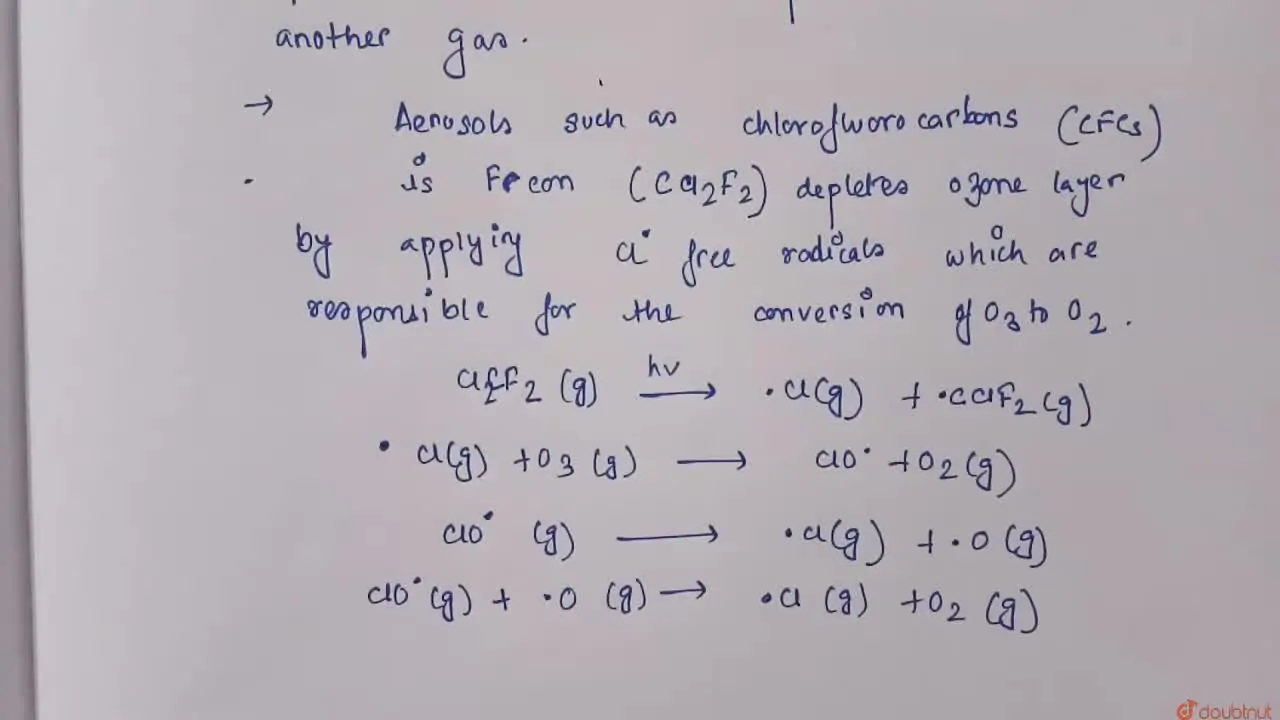 another gas.
→ Aerosols such as chlorofluorocarbons (CFCs)
is Frcon (CCl2F2) depletes ozone layer
by applying Cl• free radicals which are
responsible for the conversion of O3 to O2.
Cl2CF2 (g) hv → •Cl(g) + •CClF2(g)
• Cl(g) + O3 (g) → ClO• + O2 (g)
ClO• (g) → •Cl(g) + •O (g)
ClO• (g) + •O (g) → •Cl (g) + O2 (g)
doubtnut